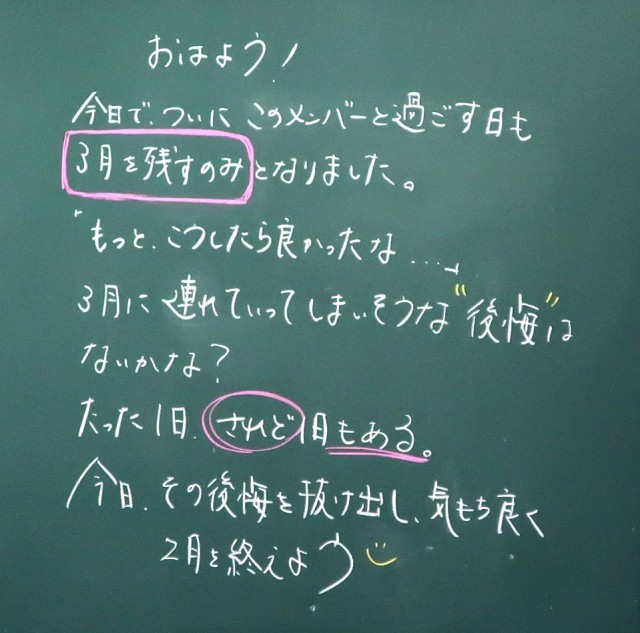 おはよう!
今日で、ついに このメンバーと過ごす日も
3月を残すのみとなりました。
「もっと、こうしたら良かったな....」
3月に連れていってしまいそうな"後悔"は
ないかな?
たった1日、されど1日もある。
今日、その後悔を抜け出し、気もち良く
2月を終えよう